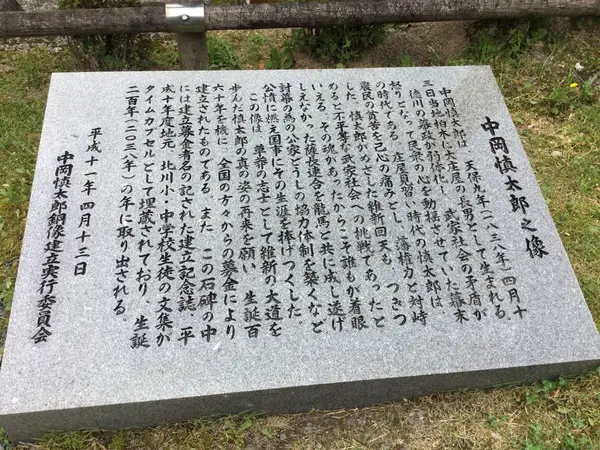 中岡慎太郎之像
中岡慎太郎は、天保九年(一八三八年)四月十
三日当地柏木に大庄屋の長男として生まれる。
徳川の幕藩が弱体化し、武家社会の矛盾が
怒りとなって民衆の心を動揺させていた幕末
の時代である。庄屋見習い時代の慎太郎は、
農民の貧苦を己心の痛みとし、藩権力と対峙
した。慎太郎がめざした維新回天も、つきつ
めると不平等な武家社会への挑戦であったと
いえる。その魂があったからこそ誰もが着眼
しえなかった薩長連合を龍馬と共に成し遂げ
討幕の為の公家どうしの協力体制を築くなど
公憤に燃え国事にその生涯を捧げつくした。
この像は、草莽の志士として維新の大道を
歩んだ慎太郎の真の姿の再来を願い、生誕百
六十年を機に、全国の方々からの募金により
建立されたものである。また、この石碑の中
には建立募金者名の記された建立記念誌、平
成十年度地元、北川小・中学校生徒の文集が
タイムカプセルとして埋蔵されており、生誕
二百年(二〇三八年)の年に取り出される。
平成十一年四月十三日
中岡慎太郎銅像建立実行委員会